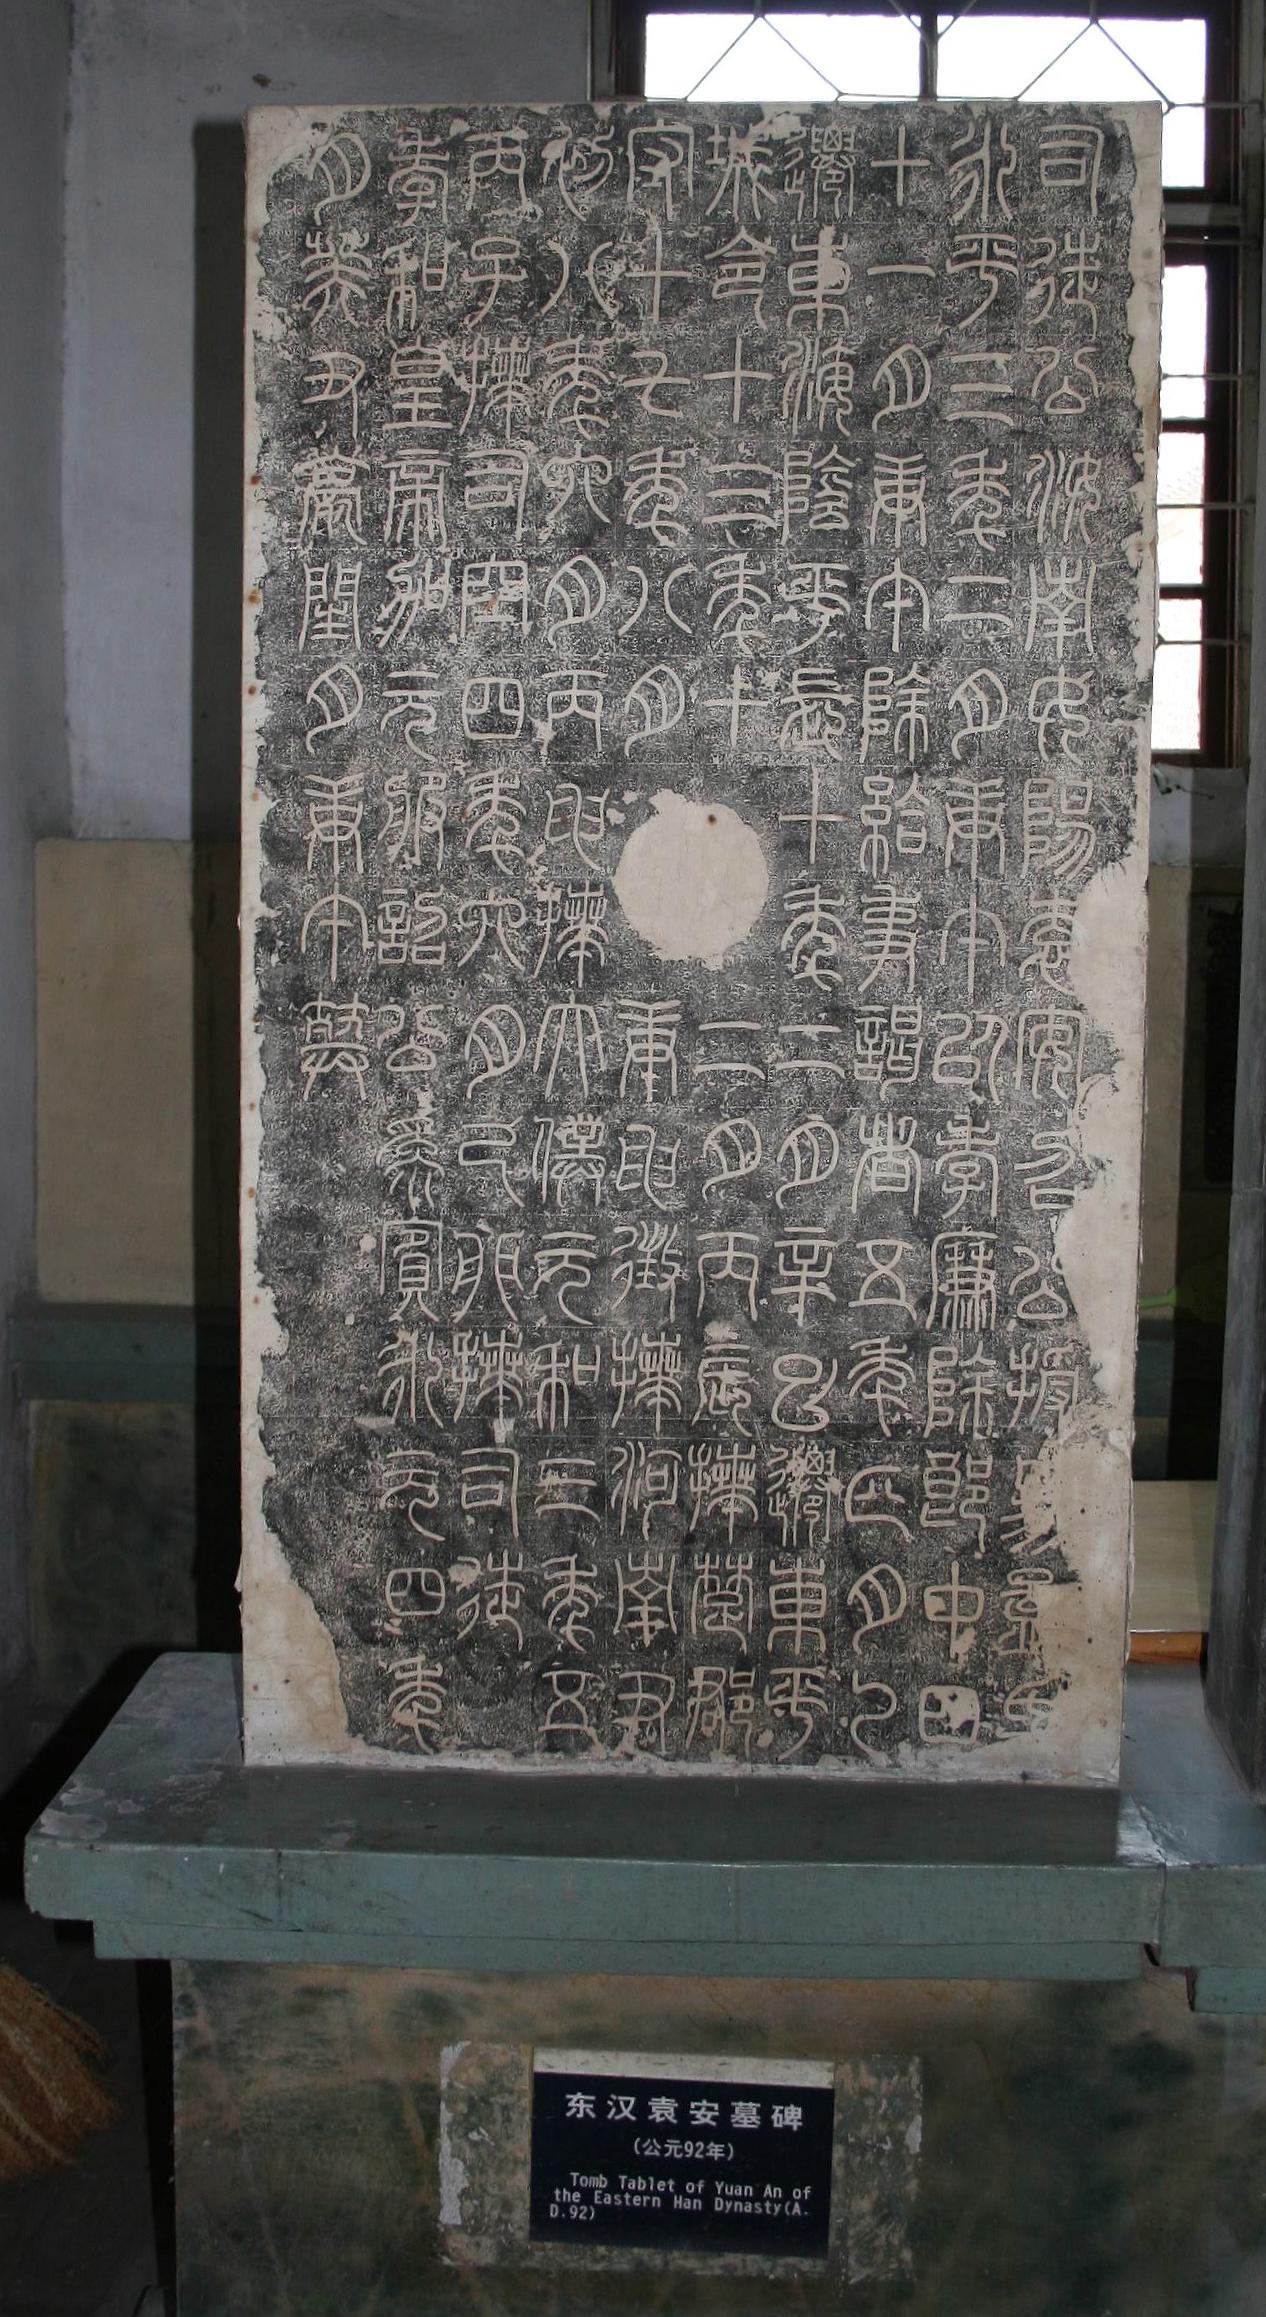 司徒公汝南女陽袁安召公授易孟氏
永平三年二月庚午以孝廉除郎中四
十一月庚午除給事謁者五年正月乙
遷東海陰平長十年二月辛巳遷東平
城令十三年十二月丙辰拜楚郡
守十七年八月庚申徵拜河南尹
初八年六月丙申拜大僕元和三年五
丙子拜司空四年六月己卯拜司徒
孝和皇帝加元服詔公為賓永元四年
月癸丑薨閏月庚午葬
东汉袁安墓碑
(公元92年)
Tomb Tablet of Yuan An of
the Eastern Han Dynasty(A.
D.92)